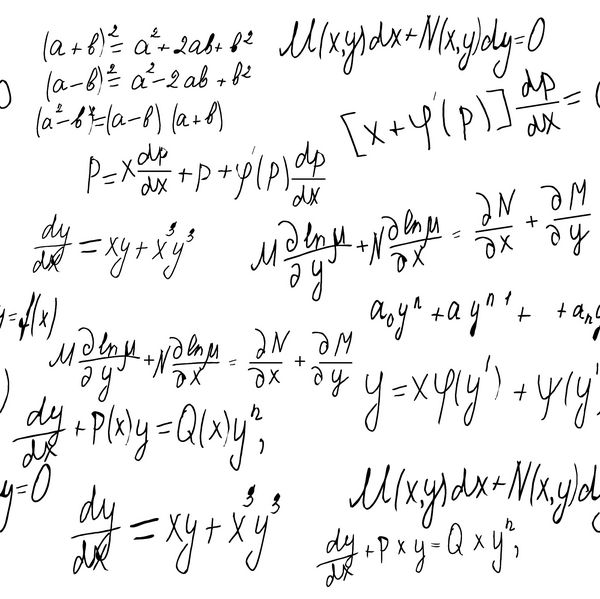 (a+b)²= a²+2ab+b²
(a-b)²= a²-2ab+b²
(a²-b²)=(a-b) (a+b)
M(x,y)dx+N(x,y)dy=0
[x+φ'(p)] dp/dx =
p=x dp/dx +p+φ'(p) dp/dx
dy/dx = xy+x³y³
M ∂lnμ/∂y +N ∂lnμ/∂x = ∂N/∂x + ∂M/∂y
y=f(x)
a₀yⁿ+a yⁿ ¹+ +aₙy
M ∂lnμ/∂y +N ∂lnμ/∂x = ∂N/∂x + ∂M/∂y
y=xφ(y')+ψ(y'
dy/dx +P(x)y=Q(x)yⁿ,
y=0
M(x,y)dx+N(x,y)dy
dy/dx = xy+x³y³
dy/dx +P x y=Q x yⁿ,